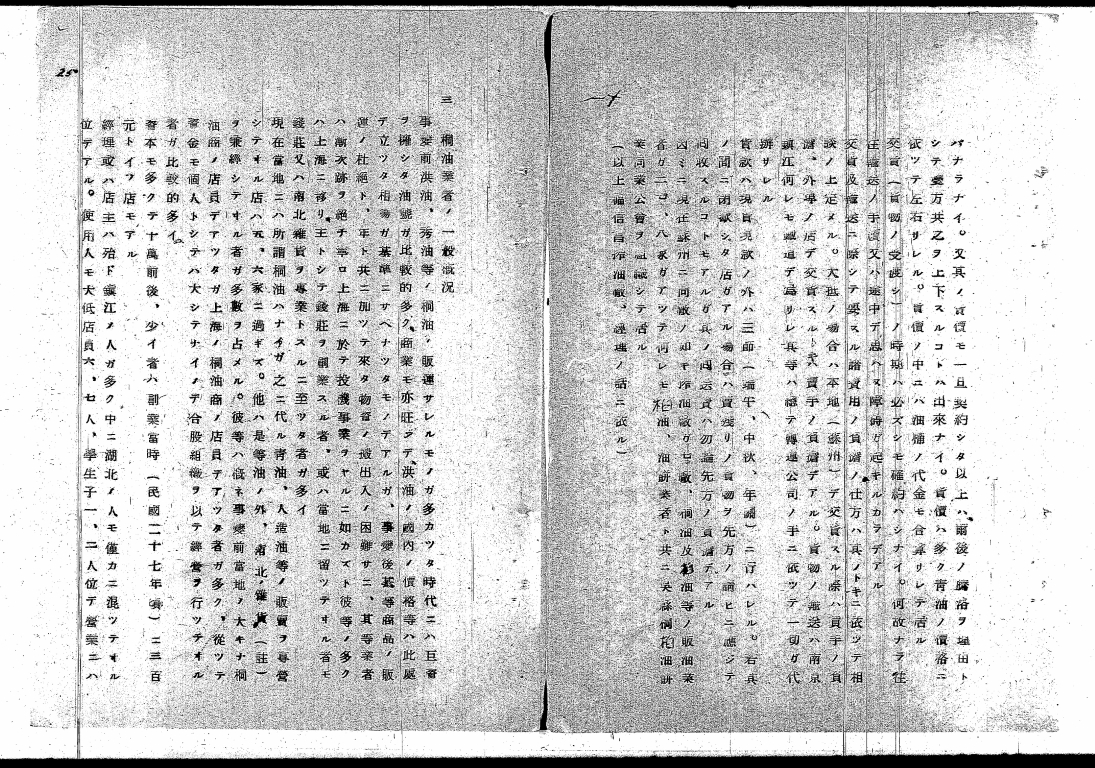 バナラナイ。又其ノ賣價モ一旦契約シタ以上ハ爾後ノ騰落ヲ理由ト
シテ雙方共之ヲ上下スルコトハ出來ナイ。賣價ハ多ク青油ノ價格ニ
依ツテ左右サレル。賣價ノ中ニハ油桶ノ代金モ合算サレテ居ル
交貨(貨物ノ受渡シ)ノ時期ハ必ズシモ確約ハシナイ。何故ナラ往
往運送ノ手續又ハ途中デ思ハヌ障碍ガ起キルカラデアル
交貨及運送ニ際シテ要スル諸費用ノ負擔ノ仕方ハ其ノトキニ依ツテ相
談ノ上定メル。大抵ノ場合ハ本地(蘇州)デ交貨スル際ハ買手ノ負
擔、外埠ノ店デ交貨スルトキハ賣手ノ負擔デアル。貨物ノ運送ハ南京
鎮江何レモ鐵道デ爲サレ其等ハ總テ轉運公司ノ手ニ依ツテ一切ガ代
辦サレル
貨款ハ現貨現款ノ外ハ三節(端午、中秋、年關)ニ行ハレル。若シ其
ノ間ニ閉歇シタ店ガアル場合ハ賣殘リノ貨物ヲ先方ノ請ヒニ應ジテ
回收スルコトモアルガ其ノ回送費ハ勿論先方ノ負擔デアル
因ミニ現在蘇州ニ同廠ノ如キ搾油廠ガ七廠、桐油及杉油等ノ販油業
者ガ二〇、八家ガアツテ何レモ桕油、油餅業者ト共ニ吳縣桐桕油餅
業同業公會ヲ組織シテ居ル
(以上福信昌搾油廠、經理ノ話ニ依ル)
25
三 桐油業者ノ一般概況
事變前洪油、秀油等ノ桐油ノ販運サレルモノガ多カツタ時代ニハ巨資
ヲ擁シタ油號ガ比較的多ク、商業モ亦旺ンデ、洪油ノ國內ノ價格等ハ此處
デ立ツタ相場ガ基準ニサヘナツタモノデアルガ、事變後此等商品ノ販
運ノ杜絕ト、年ト共ニ加ツテ來タ物資ノ搬出入ノ困難サニ、其等業者
ハ漸次跡ヲ絕チ寧ロ上海ニ於テ投機事業ヲヤルニ如カズト彼等ノ多ク
ハ上海ニ移リ主トシテ錢莊ヲ副業スル者、或ハ當地ニ留ツテオル者モ
錢莊又ハ南北雜貨ヲ專業トスルニ至ツタ者ガ多イ
現在當地ニハ所謂桐油ハナイガ之ニ代ル青油、人造油等ノ販賣ヲ專營
シテオル店ハ五、六家ニ過ギズ。他ハ是等油ノ外、南北雜貨(註)
ヲ兼經シテオル者ガ多數ヲ占メル。彼等ハ概ネ事變前當地ノ大キナ桐
油商ノ店員デアツタガ上海ノ桐油商ノ店員デアツタ者ガ多ク、從ツテ
資金モ個人トシテハ大シテナイノデ合股組織ヲ以テ經營ヲ行ツテオル
者ガ比較的多イ
資本モ多クテ十萬前後、少イ者ハ副業當時(民國二十七年頃)ニ三百
元トイフ店モアル
經理或ハ店主ハ殆ド鎮江ノ人ガ多ク中ニ湖北ノ人モ僅カニ混ツテオル
位デアル。使用人モ大低店員六、七人、學生子一、二人位デ營業ニハ